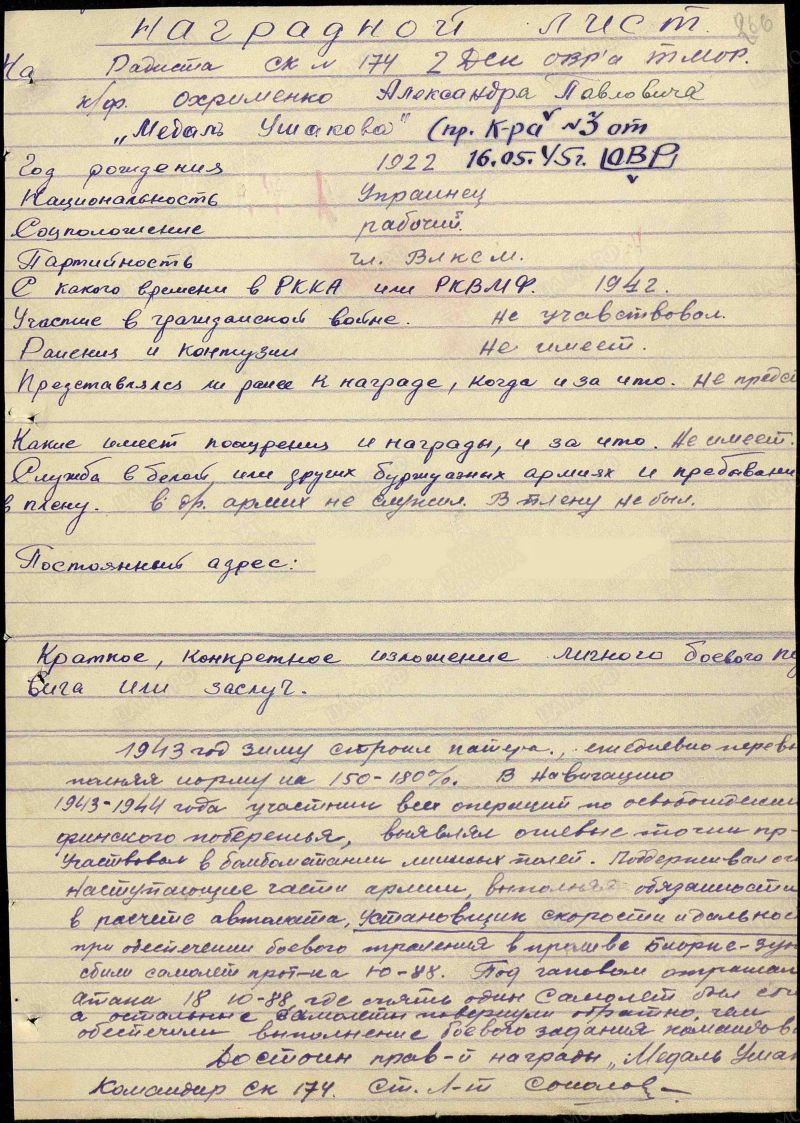 Наградной лист.
266
На Радиста СК № 174 2 ДСК ОВР'а ТМОР.
к/ф. Охрименко Александра Павловича
„Медаль Ушакова" (пр. К-ра № 3 от
Год рождения 1922 16.05.45г. ОВР)
Национальность Украинец
Соцположение рабочий.
Партийность чл. Влксм.
С какого времени в РККА или РКВМФ. 1942.
Участие в гражданской войне. Не учавствовал.
Ранения и контузии Не имеет.
Представлялся ли ранее к награде, когда и за что. Не предс
Какие имеет поощрения и награды, и за что. Не имеет.
Служба в белой, или других буржуазных армиях и пребывани
в плену. в др. армих не служил. В плену не был.
Постоянный адрес:
Краткое, конкретное изложение личного боевого по
вига или заслуг.
1943 год зиму строил катера., ежедневно перевы
полняя норму на 150-180%. В навигацию
1943-1944 года участник всех операций по освобождени
финского побережья, выявлял огневые точки пр-
Участвовал в бомбометании минных полей. Поддерживал ог
наступающие части армии, выполняя обязанности
в расчете автомата, установщик скорости и дально
при обеспечении боевого траления в проливе Биорке-Зун
сбили самолет прот-ка Ю-88. Под отражал
атаки 18 Ю-88, где опять один самолет был сби
а остальные самолеты повернули обратно, чем
обеспечили выполнение боевого задания командов
Достоин прав-й награды „Медаль Ушак
Командир СК 174. Ст. Л-т Соколов